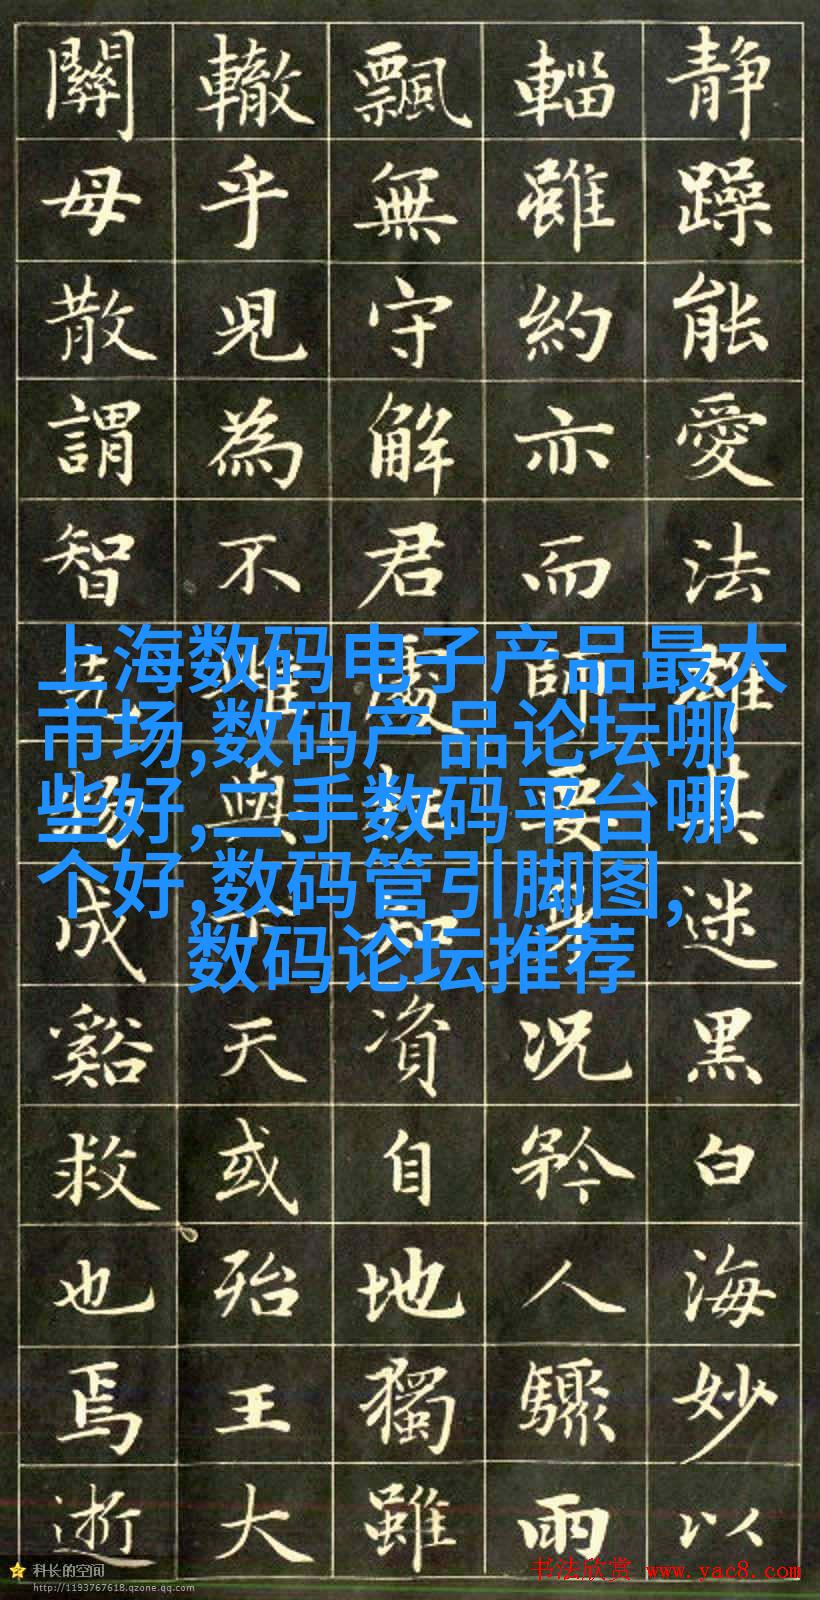 静躁能愛法其迷黑白海妙以
輜雖約亦而師要身況矜人驟雨
飄無守解君處知資自地獨雖
轍乎児為不與天或殆王大
關毋散謂智物成谿救也焉逝
上海数码电子产品最大
市场,数码产品论坛哪
些好,二手数码平台哪
个好,数码管引脚图,
数码论坛推荐
科长的空间
http://1193767618.qzone.qq.com
书法欣赏 www.yac8.com